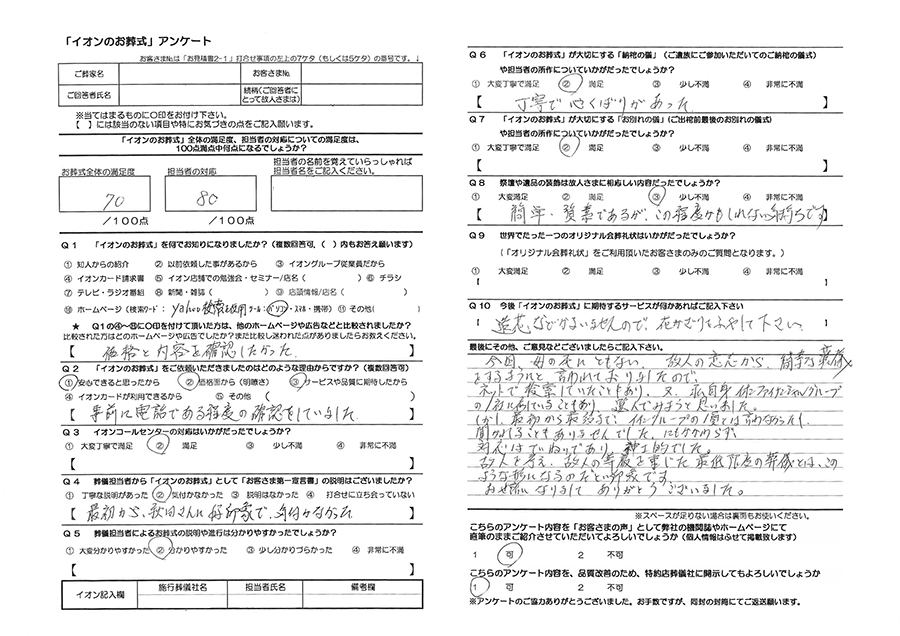 「イオンのお葬式」アンケート
お客さまNo.は「お見積書2-1」打合せ事項の左上の7ケタ（もしくは5ケタ）の番号です。
ご葬家名 お客さまNo.
ご回答者氏名 続柄（ご回答者にとって故人さまは）
※当てはまるものに〇印をお付け下さい。
【　】には該当のない項目や特にお気づきの点をご記入願います。
「イオンのお葬式」全体の満足度、担当者の対応についての満足度は、
100点満点中何点になるでしょうか？
お葬式全体の満足度 担当者の対応 担当者の名前を覚えていらっしゃれば
担当者名をご記入ください。
70 80
/100点 /100点
Q1 「イオンのお葬式」を何でお知りになりましたか？（複数回答可、（　）内もお答え願います）
① 知人からの紹介 ② 以前依頼した事があるから ③ イオングループ従業員だから
④ イオンカード請求書 ⑤ イオン店舗での勉強会・セミナー/店名（　） ⑥ チラシ
⑦ テレビ・ラジオ番組 ⑧ 新聞・雑誌（　） ⑨ 店頭情報/店名（　）
⑩ ホームページ（検索ワード： yahoo検索を使用 ツール：パソコン・スマホ・携帯） ⑪ その他（　）
★ Q1の④〜⑪に〇印を付けて頂いた方は、他のホームページや広告などと比較されましたか？
比較された方はどのホームページや広告でしたか？また比較し迷われた点がありましたらお教えください。
【 価格と内容を確認したかった 】
Q2 「イオンのお葬式」をご依頼いただきましたのはどのような理由からですか？（複数回答可）
① 安心できると思ったから ② 価格面から（明瞭さ） ③ サービスや品質に期待したから
④ イオンカードが利用できるから ⑤ その他（　）
【 事前に電話である程度の確認をしていました 】
Q3 イオンコールセンターの対応はいかがだったでしょうか？
① 大変丁寧で満足 ② 満足 ③ 少し不満 ④ 非常に不満
【　】
Q4 葬儀担当者から「イオンのお葬式」として「お客さま第一宣言書」の説明はございましたか？
① 丁寧な説明があった ② 気付かなかった ③ 説明はなかった ④ 打合せに立ち会っていない
【 最初から、秋田さんに好印象で、気付かなかった 】
Q5 葬儀担当者によるお葬式の説明や進行は分かりやすかったでしょうか？
① 大変分かりやすかった ② 分かりやすかった ③ 少し分りづらかった ④ 非常に不満
【　】
イオン記入欄 施行葬儀社名 担当者氏名 備考欄
Q6 「イオンのお葬式」が大切にする「納棺の儀」（ご遺族にご参加いただいてのご納棺の儀式）
や担当者の所作についていかがだったでしょうか？
① 大変丁寧で満足 ② 満足 ③ 少し不満 ④ 非常に不満
【 丁寧で心くばりがあった 】
Q7 「イオンのお葬式」が大切にする「お別れの儀」（ご出棺前最後のお別れの儀式）
や担当者の所作についていかがだったでしょうか？
① 大変丁寧で満足 ② 満足 ③ 少し不満 ④ 非常に不満
【　】
Q8 祭壇や遺品の装飾は故人さまに相応しい内容だったでしょうか？
① 大変満足 ② 満足 ③ 少し不満 ④ 非常に不満
【 簡単・質素であるが、この程度かもしれない気持ちです 】
Q9 世界でたった一つのオリジナル会葬礼状はいかがだったでしょうか？
（「オリジナル会葬礼状」をご利用頂いたお客さまのみのご質問となります。）
① 大変満足 ② 満足 ③ 少し不満 ④ 非常に不満
【　】
Q10 今後「イオンのお葬式」に期待するサービスが何かあればご記入下さい
【 造花などかまいませんので、花かざりをふやして下さい 】
最後にその他、ご意見などございましたらご記入下さい。
今回、母の死にともない、故人の意志から、簡素な葬儀
をするようにと言われておりましたので、
ネットで検索していたこともあり、又、私自身イオンファイナンシャルグループ
の会社に働いていることもあり、選んでみようと思いました。
しかし、最初から最後まで、イオングループの方とは言わなかったし、
聞かれることもありませんでした。にもかかわらず、
対応はていねいであり、紳士的でした。
故人を考え、故人の尊厳を重んじた最低限度の葬儀とは、この
ような物になるのだという印象です。
お世話になりまして ありがとうございました。
※スペースが足りない場合は裏面もお使いください。
こちらのアンケート内容を「お客さまの声」として弊社の機関誌やホームページにて
直筆のままご紹介させていただいてよろしいでしょうか（個人情報はふせて掲載致します）
1 可 2 不可
こちらのアンケート内容を、品質改善のため、特約店葬儀社に開示してもよろしいでしょうか
1 可 2 不可
※アンケートのご協力ありがとうございました。お手数ですが、同封の封筒にてご返送願います。